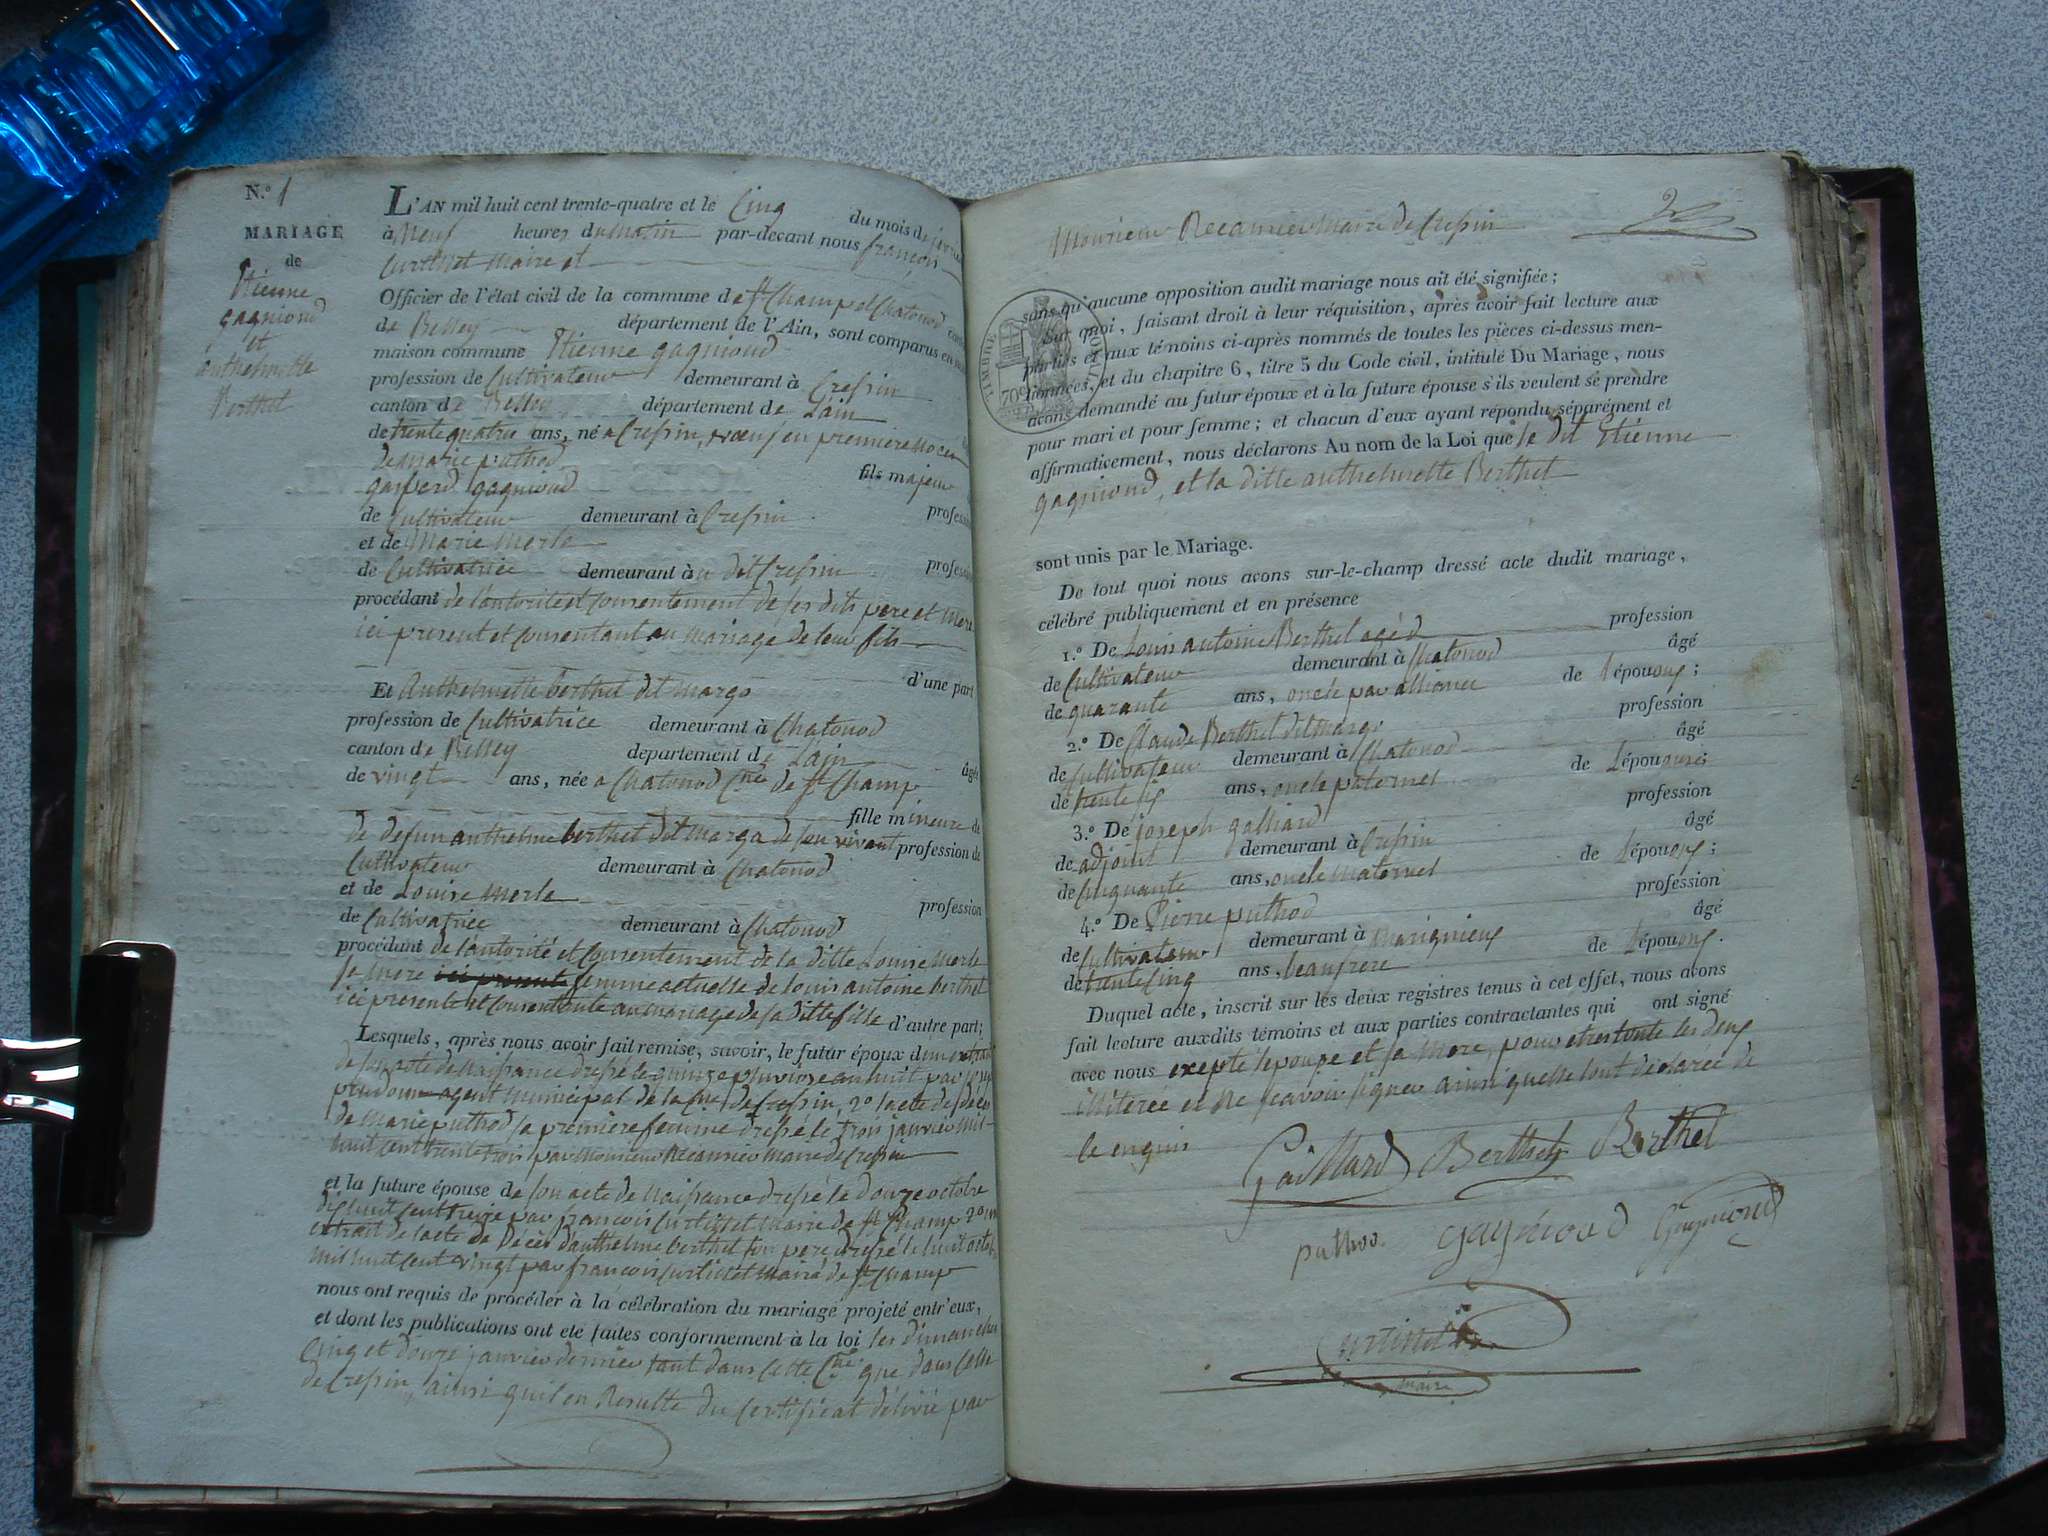 N.° 1
MARIAGE
de
Etienne
gagnioud
et
anthelmette
Berthet
L'AN mil huit cent trente-quatre et le Cinq du mois de
à Neuf heures du matin par-devant nous françois
Curtillet maire et
Officier de l'état civil de la commune de St Champ et Chatonod
de Belley département de l'Ain, sont comparus en
maison commune Etienne gagnioud
profession de Cultivateur demeurant à Crespin
canton de Belley département de Lain
de trente quatre ans, né a Crespin, veuf en premiere noces
de marie puthod
gaspard gagnioud fils majeur
de Cultivateur demeurant à Crespin
et de Marie Merle
de Cultivatrice demeurant à u dit Crespin
procédant de lautorité et consentement de ses dits pere et mere
ici present et consentant au mariage de leur fils
d'une part
Et Anthelmette berthet dit margo
profession de Cultivatrice demeurant à Chatonod
canton de Belley département de Lain
de vingt ans, née a Chatonod Cne de St Champ âgée
fille mineure de
de defun anthelme berthet dit marga de son vivant profession de
Cultivateur demeurant à Chatonod
et de Louise Merle profession
de Cultivatrice demeurant à Chatonod
procédant de lautorité et Consentement de la ditte Louise Merle
sa mere ici present femme actuelle de louis antoine berthet
ici presente et consentante au mariage de sa ditte fille d'autre part;
Lesquels, après nous avoir fait remise, savoir, le futur époux d
de son acte de Naissance dressé le quinze pluviose an huit par
agent municipal de la Cne de Crespin, 2° lacte de décès
de Marie puthod sa premiere femme dressé le trois janvier mil
huit cent trente trois par Monsieur Recamier Maire de Crespin
et la future épouse de son acte de Naissance dressé le douze octobre
dixhuit cent treize par francois Curtillet maire de St Champ 2° un
extrait de lacte de Décès danthelme berthet son pere dressé le huit
mil huit cent vingt par francois Curtillet maire de St Champ
nous ont requis de procéder à la célébration du mariage projeté entr'eux,
et dont les publications ont été faites conformément à la loi les dimanches
Cinq et douze janvier dernier tant dans cette Cne que dans celle
de Crespin, ainsi quil en Resulte du certificat délivré par
Monsieur Recamier Maire de Crespin
sans qu'aucune opposition audit mariage nous ait été signifiée;
Sur quoi, faisant droit à leur réquisition, après avoir fait lecture aux
parties et aux témoins ci-après nommés de toutes les pièces ci-dessus men-
tionnées, et du chapitre 6, titre 5 du Code civil, intitulé Du Mariage, nous
avons demandé au futur époux et à la future épouse s'ils veulent se prendre
pour mari et pour femme; et chacun d'eux ayant répondu séparément et
affirmativement, nous déclarons Au nom de la Loi que le dit Etienne
gagnioud, et la ditte anthelmette Berthet
TIMBRE ROYAL
70c
sont unis par le Mariage.
De tout quoi nous avons sur-le-champ dressé acte dudit mariage,
célébré publiquement et en présence
1.° De Louis antoine Berthet agé d profession
de Cultivateur demeurant à Chatonod âgé
de quarante ans, oncle par alliance de Lépouse;
2.° De Claude Berthet dit margo profession
de Cultivateur demeurant à Chatonod âgé
de trente six ans, oncle paternel de Lépouse;
3.° De joseph galliard profession
de adjoint demeurant à Crespin âgé
de Cinquante ans, oncle maternel de Lépoux;
4.° De Pierre puthod profession
de Cultivateur demeurant à Marignieux âgé
de trente Cinq ans, beaufrere de Lépoux.
Duquel acte, inscrit sur les deux registres tenus à cet effet, nous avons
fait lecture auxdits témoins et aux parties contractantes qui ont signé
avec nous exepté lépouse et sa Mere, pour etres toute les deux
illiterée et ne scavoir signer ainsi quelle lont déclarée de
le enquis
Gaillard Berthet Berthet
puthod gagnioud Gagnioud
Curtillet
maire